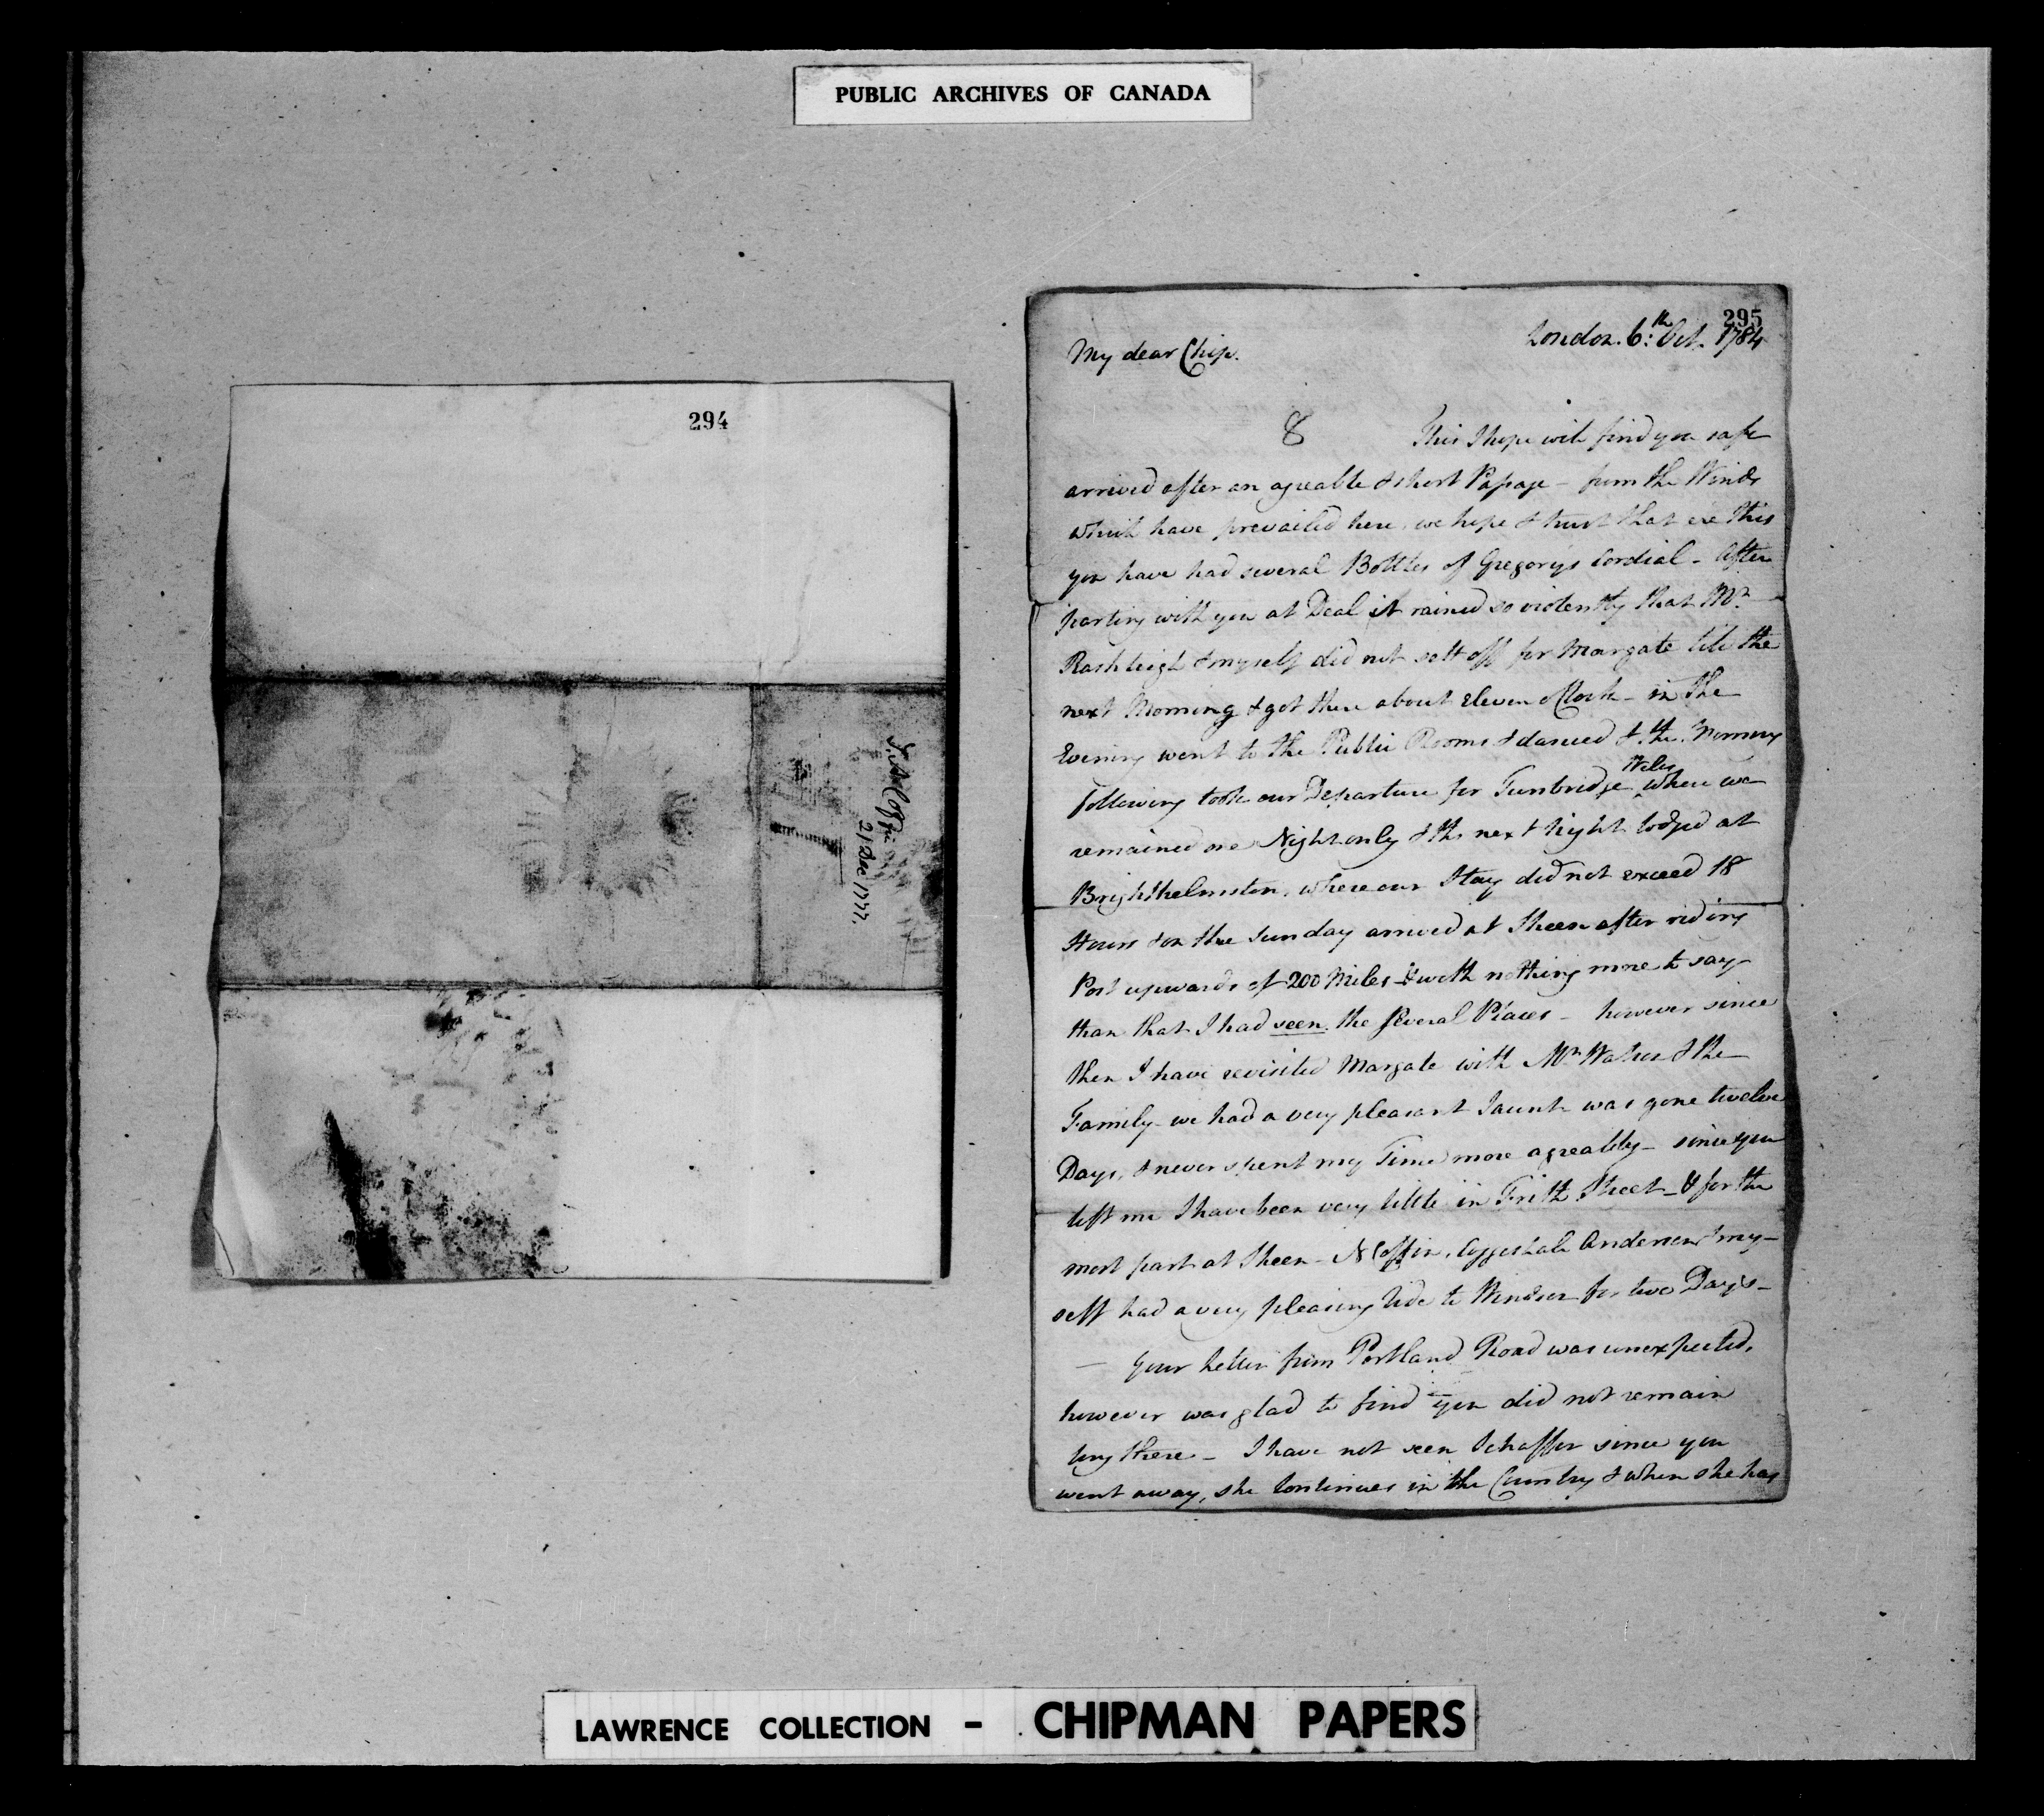 PUBLIC ARCHIVES OF CANADA
294
21 Dec 1777
295
London. 6.th Oct. 1784
My dear Chip.
8 This I hope will find you safe
arrived after an agreable & short Passage - from the Winds
which have prevailed here, we hope & trust that ere this
you have had several Bottles of Gregorys Cordial - After
parting with you at Deal it rained so violently that Mr.
Rashleigh & myself did not sett off for Margate till the
next Morning & got there about eleven oClock - in the
Evening went to the Public Rooms & danced & the Morning
following took our Departure for Tunbridge Wells where we
remained one Night only & the next Night lodged at
Brighthelmston, where our Stay did not exceed 18
Hours & on the Sunday arrived at Sheen after riding
Post upwards of 200 Miles & with nothing more to say
than that I had seen the several Places - however since
then I have revisited Margate with Mr. & the
Family - we had a very pleasant Jaunt was gone twelve
Days, & never spent my Time more agreably - since you
left me I have been very little in Frith Street - & for the
most part at Sheen - N Coffin, Coggeshall Anderson & my-
self had a very pleasing ride to Windsor for two Days -
- Your Letter from Portland Road was unexpected,
however was glad to find you did not remain
long there - I have not seen Schaffer since you
went away, she continues in the Country & when she has
LAWRENCE COLLECTION - CHIPMAN PAPERS